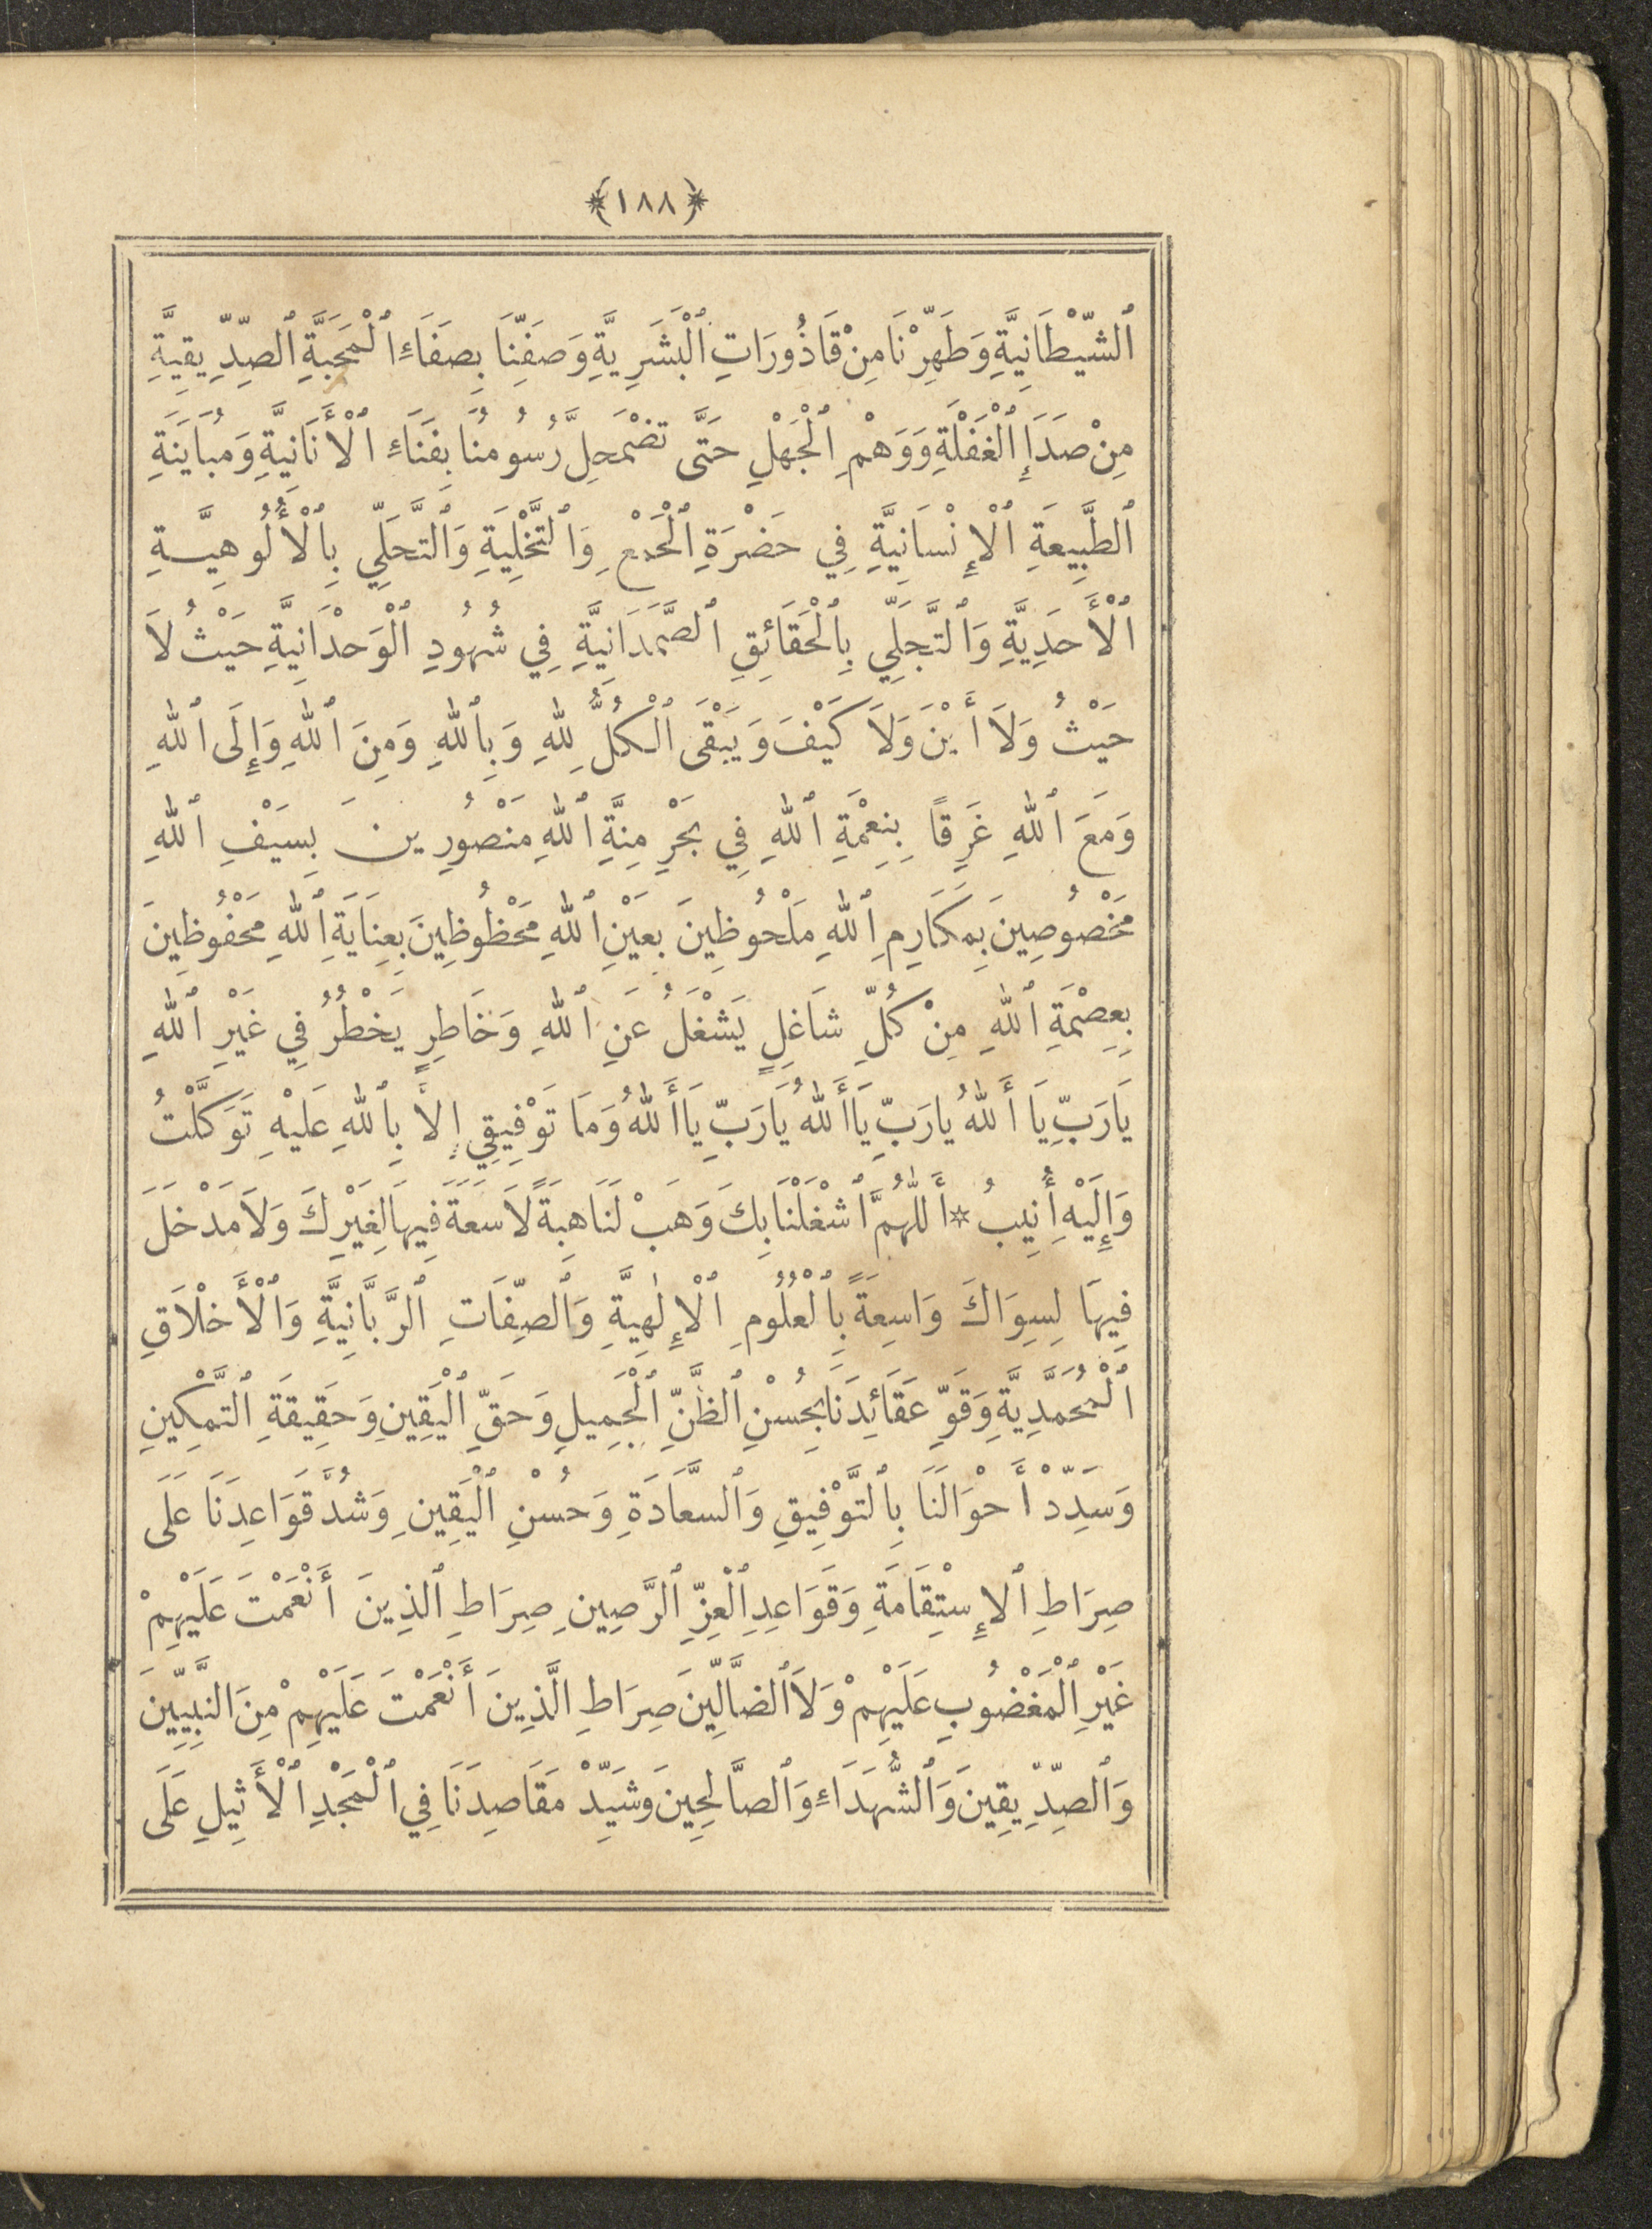 ﴿١٨٨﴾
ٱلشَّيْطَانِيَّةِ وَطَهِّرْنَا مِنْ قَاذُورَاتِ ٱلْبَشَرِيَّةِ وَصَفِّنَا بِصَفَاءِ ٱلْمَحَبَّةِ ٱلصِّدِّيقِيَّةِ
مِنْ صَدَإِ ٱلْغَفْلَةِ وَوَهْمِ ٱلْجَهْلِ حَتَّى تَضْمَحِلَّ رُسُومُنَا بِفَنَاءِ ٱلْأَنَانِيَّةِ وَمُبَايَنَةِ
ٱلطَّبِيعَةِ ٱلْإِنْسَانِيَّةِ فِي حَضْرَةِ ٱلْجَمْعِ وَٱلتَّخْلِيَةِ وَٱلتَّحَلِّي بِٱلْأُلُوهِيَّةِ
ٱلْأَحَدِيَّةِ وَٱلتَّجَلِّي بِٱلْحَقَائِقِ ٱلصَّمَدَانِيَّةِ فِي شُهُودِ ٱلْوَحْدَانِيَّةِ حَيْثُ لاَ
حَيْثُ وَلاَ أَيْنَ وَلاَ كَيْفَ وَيَبْقَى ٱلْكُلُّ لِلّٰهِ وَبِٱللّٰهِ وَمِنَ ٱللّٰهِ وَإِلَى ٱللّٰهِ
وَمَعَ ٱللّٰهِ غَرِقًا بِنِعْمَةِ ٱللّٰهِ فِي بَحْرِ مِنَّةِ ٱللّٰهِ مَنْصُورِينَ بِسَيْفِ ٱللّٰهِ
مَخْصُوصِينَ بِمَكَارِمِ ٱللّٰهِ مَلْحُوظِينَ بِعَيْنِ ٱللّٰهِ مَحْظُوظِينَ بِعِنَايَةِ ٱللّٰهِ مَحْفُوظِينَ
بِعِصْمَةِ ٱللّٰهِ مِنْ كُلِّ شَاغِلٍ يَشْغَلُ عَنِ ٱللّٰهِ وَخَاطِرٍ يَخْطُرُ فِي غَيْرِ ٱللّٰهِ
يَارَبِّ يَا أَللّٰهُ يَارَبِّ يَاأَللّٰهُ يَارَبِّ يَاأَللّٰهُ وَمَا تَوْفِيقِي إِلاَّ بِٱللّٰهِ عَلَيْهِ تَوَكَّلْتُ
وَإِلَيْهِ أُنِيبُ * أَللّٰهُمَّ ٱشْغَلْنَا بِكَ وَهَبْ لَنَا هِبَةً لاَ سَعَةَ فِيهَا لِغَيْرِكَ وَلاَ مَدْخَلَ
فِيهَا لِسِوَاكَ وَاسِعَةً بِٱلْعُلُومِ ٱلْإِلٰهِيَّةِ وَٱلصِّفَاتِ ٱلرَّبَّانِيَّةِ وَٱلْأَخْلاَقِ
ٱلْمُحَمَّدِيَّةِ وَقَوِّ عَقَائِدَنَا بِحُسْنِ ٱلظَّنِّ ٱلْجَمِيلِ وَحَقِّ ٱلْيَقِينِ وَحَقِيقَةِ ٱلتَّمْكِينِ
وَسَدِّدْ أَحْوَالَنَا بِٱلتَّوْفِيقِ وَٱلسَّعَادَةِ وَحُسْنِ ٱلْيَقِينِ وَشُدَّ قَوَاعِدَنَا عَلَى
صِرَاطِ ٱلاِسْتِقَامَةِ وَقَوَاعِدِ ٱلْعِزِّ ٱلرَّصِينِ صِرَاطِ ٱلَّذِينَ أَنْعَمْتَ عَلَيْهِمْ
غَيْرِ ٱلْمَغْضُوبِ عَلَيْهِمْ وَلاَ ٱلضَّالِّينَ صِرَاطِ ٱلَّذِينَ أَنْعَمْتَ عَلَيْهِمْ مِنَ ٱلنَّبِيِّينَ
وَٱلصِّدِّيقِينَ وَٱلشُّهَدَاءِ وَٱلصَّالِحِينَ وَشَيِّدْ مَقَاصِدَنَا فِي ٱلْمَجْدِ ٱلْأَثِيلِ عَلَى